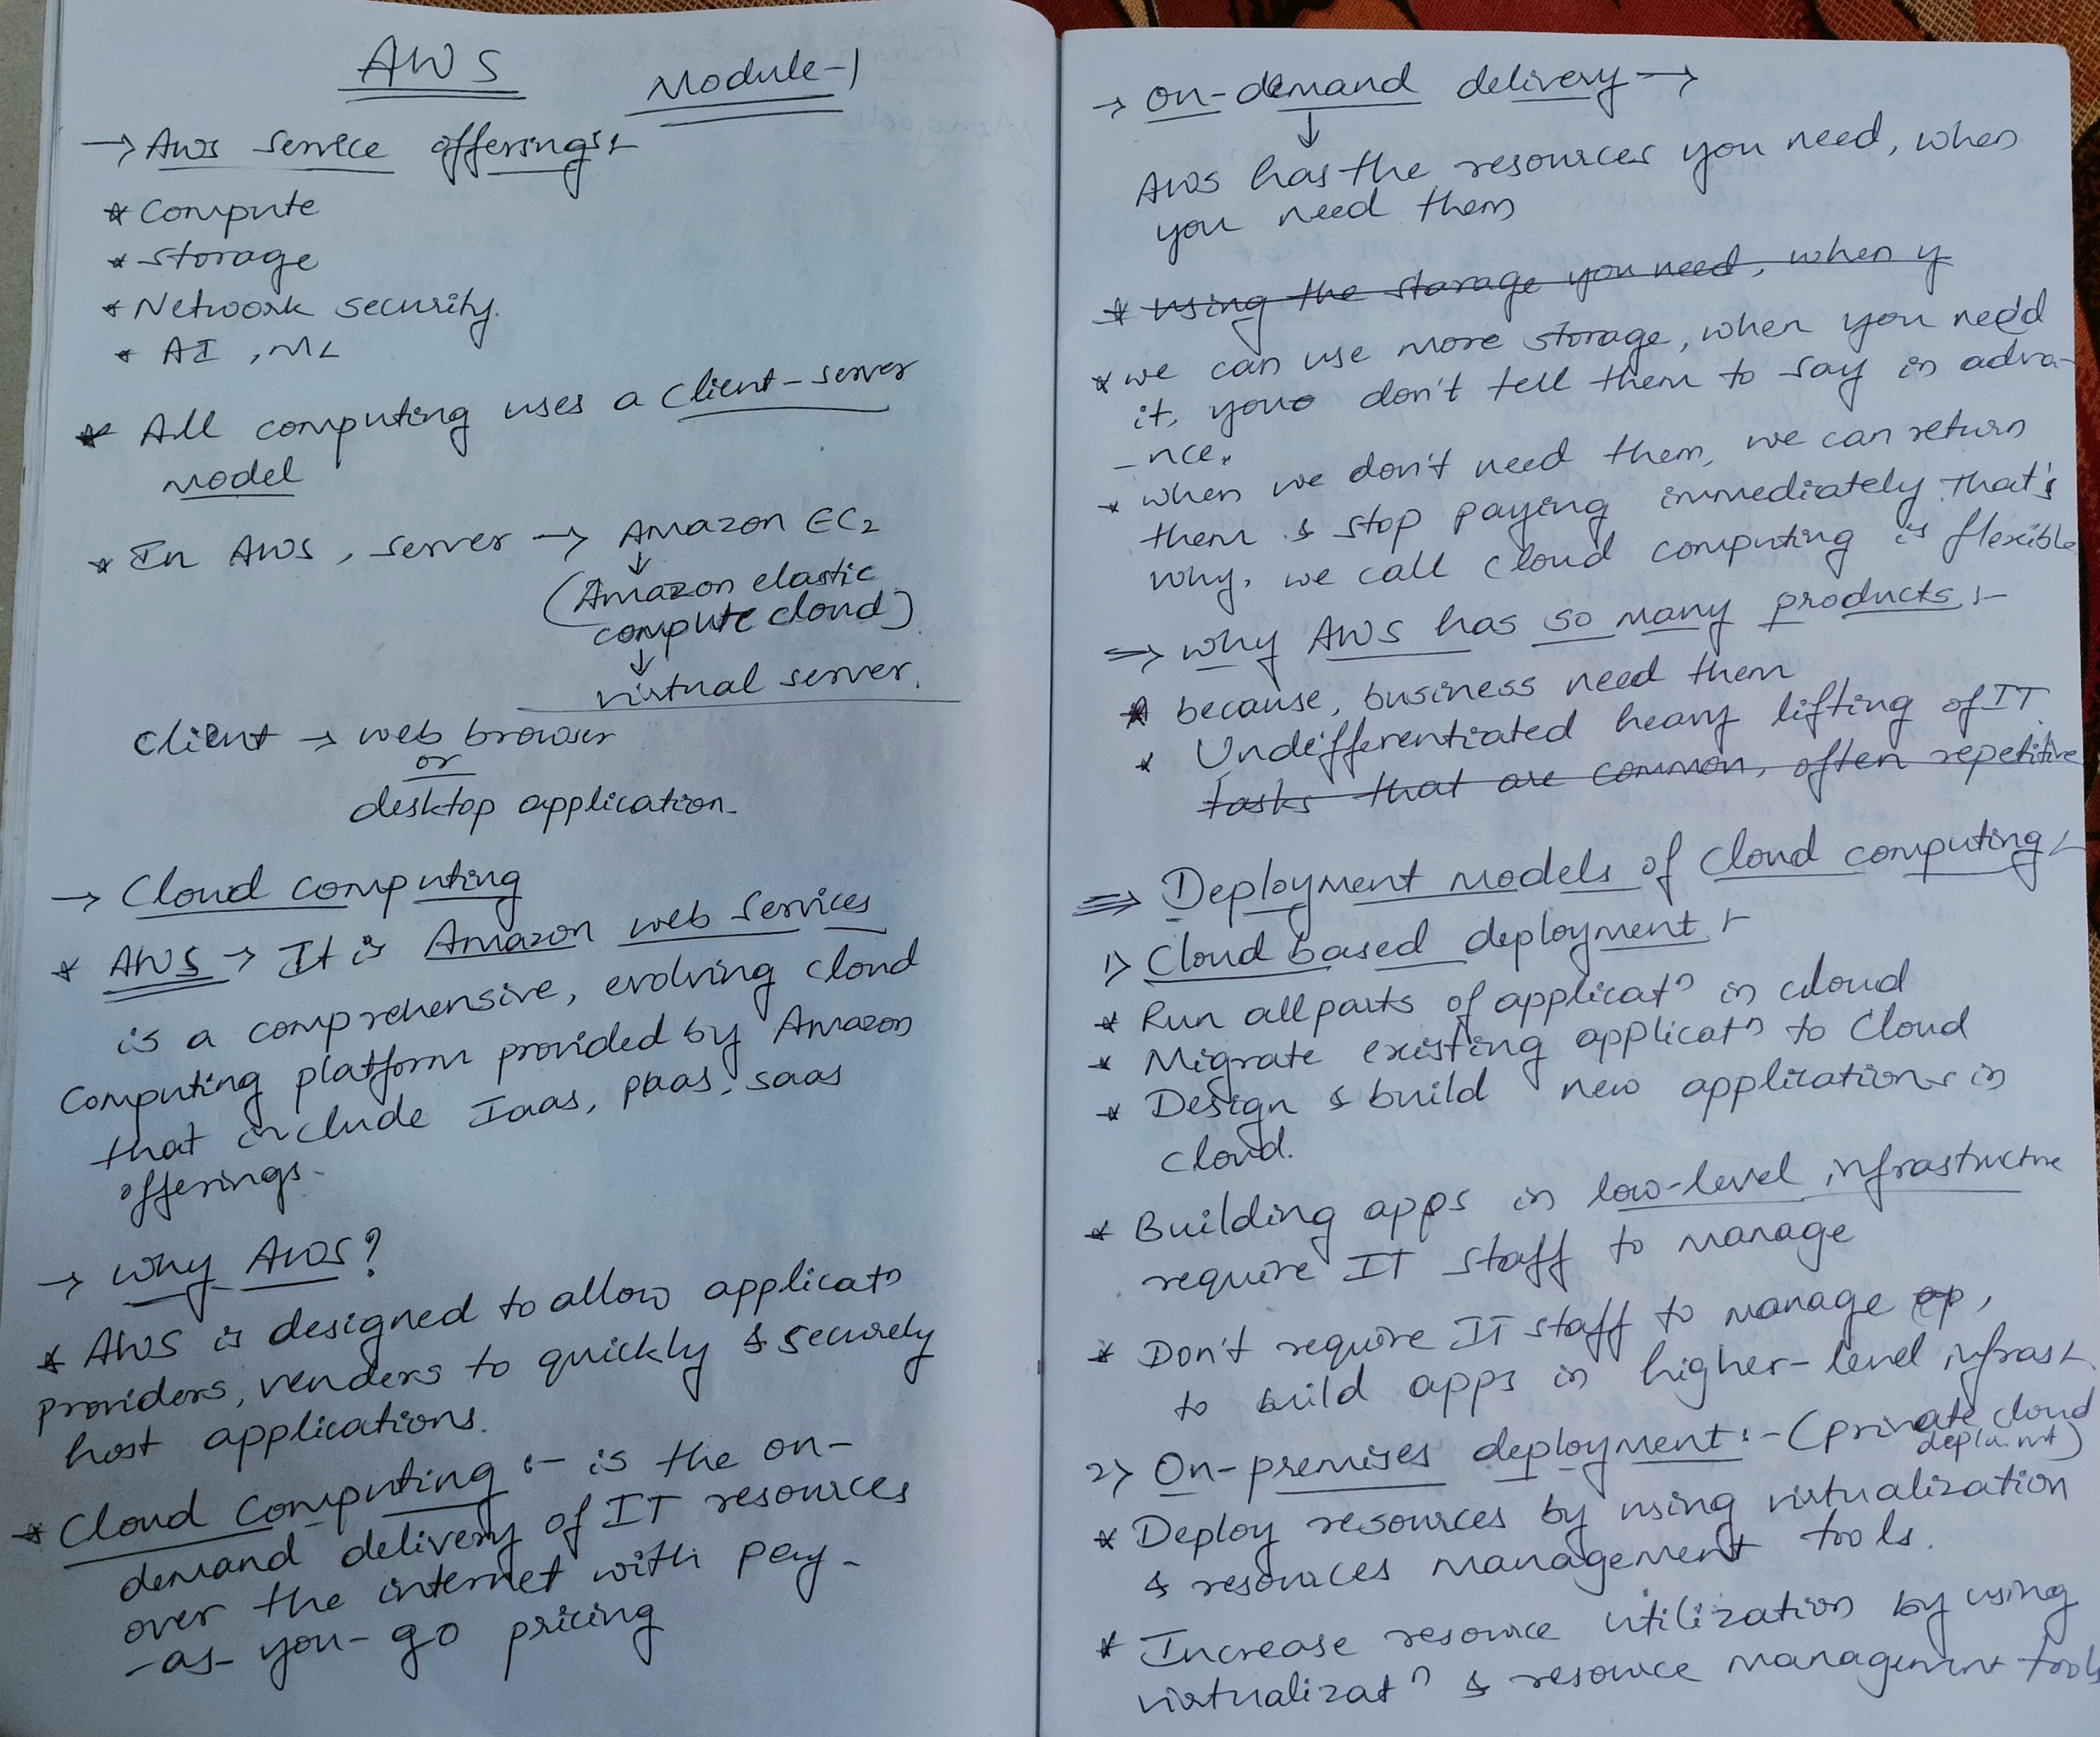 AWS
Module-1
→ Aws service offerings:-
* Compute
* Storage
* Network security.
* AI, ML
* All computing uses a client-server
model
* In AWS, server → Amazon EC2
↓
(Amazon elastic
compute cloud)
↓
virtual server.
client → web browser
or
desktop application.
→ Cloud computing
* AWS → It is Amazon web services
is a comprehensive, evolving cloud
computing platform provided by Amazon
that include Iaas, paas, saas
offerings.
→ Why AWS?
* AWS is designed to allow applicatn
providers, venders to quickly & securely
host applications.
* Cloud Computing :- is the on-
demand delivery of IT resources
over the internet with pay-
-as-you-go pricing
→ On-demand delivery →
↓
AWS has the resources you need, when
you need them
* using the storage you need, when y
* we can use more storage, when you need
it, you don't tell them to say in adva-
-nce.
* when we don't need them, we can return
them & stop paying immediately. that's
why, we call cloud computing is flexible
⇒ why AWS has so many products :-
* because, business need them
* Undefferentiated heavy lifting of IT
tasks that are common, often repetitive
⇒ Deployment models of cloud computing:-
1) Cloud based deployment :-
* Run all parts of applicatn in cloud
* Migrate existing applicatn to Cloud
* Design & build new applications in
cloud.
* Building apps in low-level infrastructure
require IT staff to manage
* Don't require IT staff to manage ap,
to build apps in higher-level infrast.
2) On-premises deployment :- (private cloud
* Deploy resources by using virtualization
& resources management tools.
* Increase resource utilization by using
virtualizatn & resource management tools